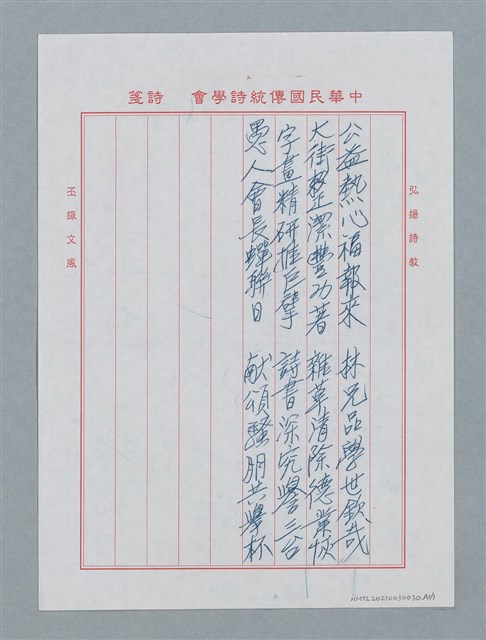 中華民國傳統詩學會　詩箋
弘揚詩教
公益熱心福報來　林兄品學世欽哉
大街整潔豐功著　雜草清除德業恢
字畫精研推巨擘　詩書深究譽三台
愚人會長蟬聯日　献頌騷朋共舉杯
丕振文風
NMTL20210030030.A1/1